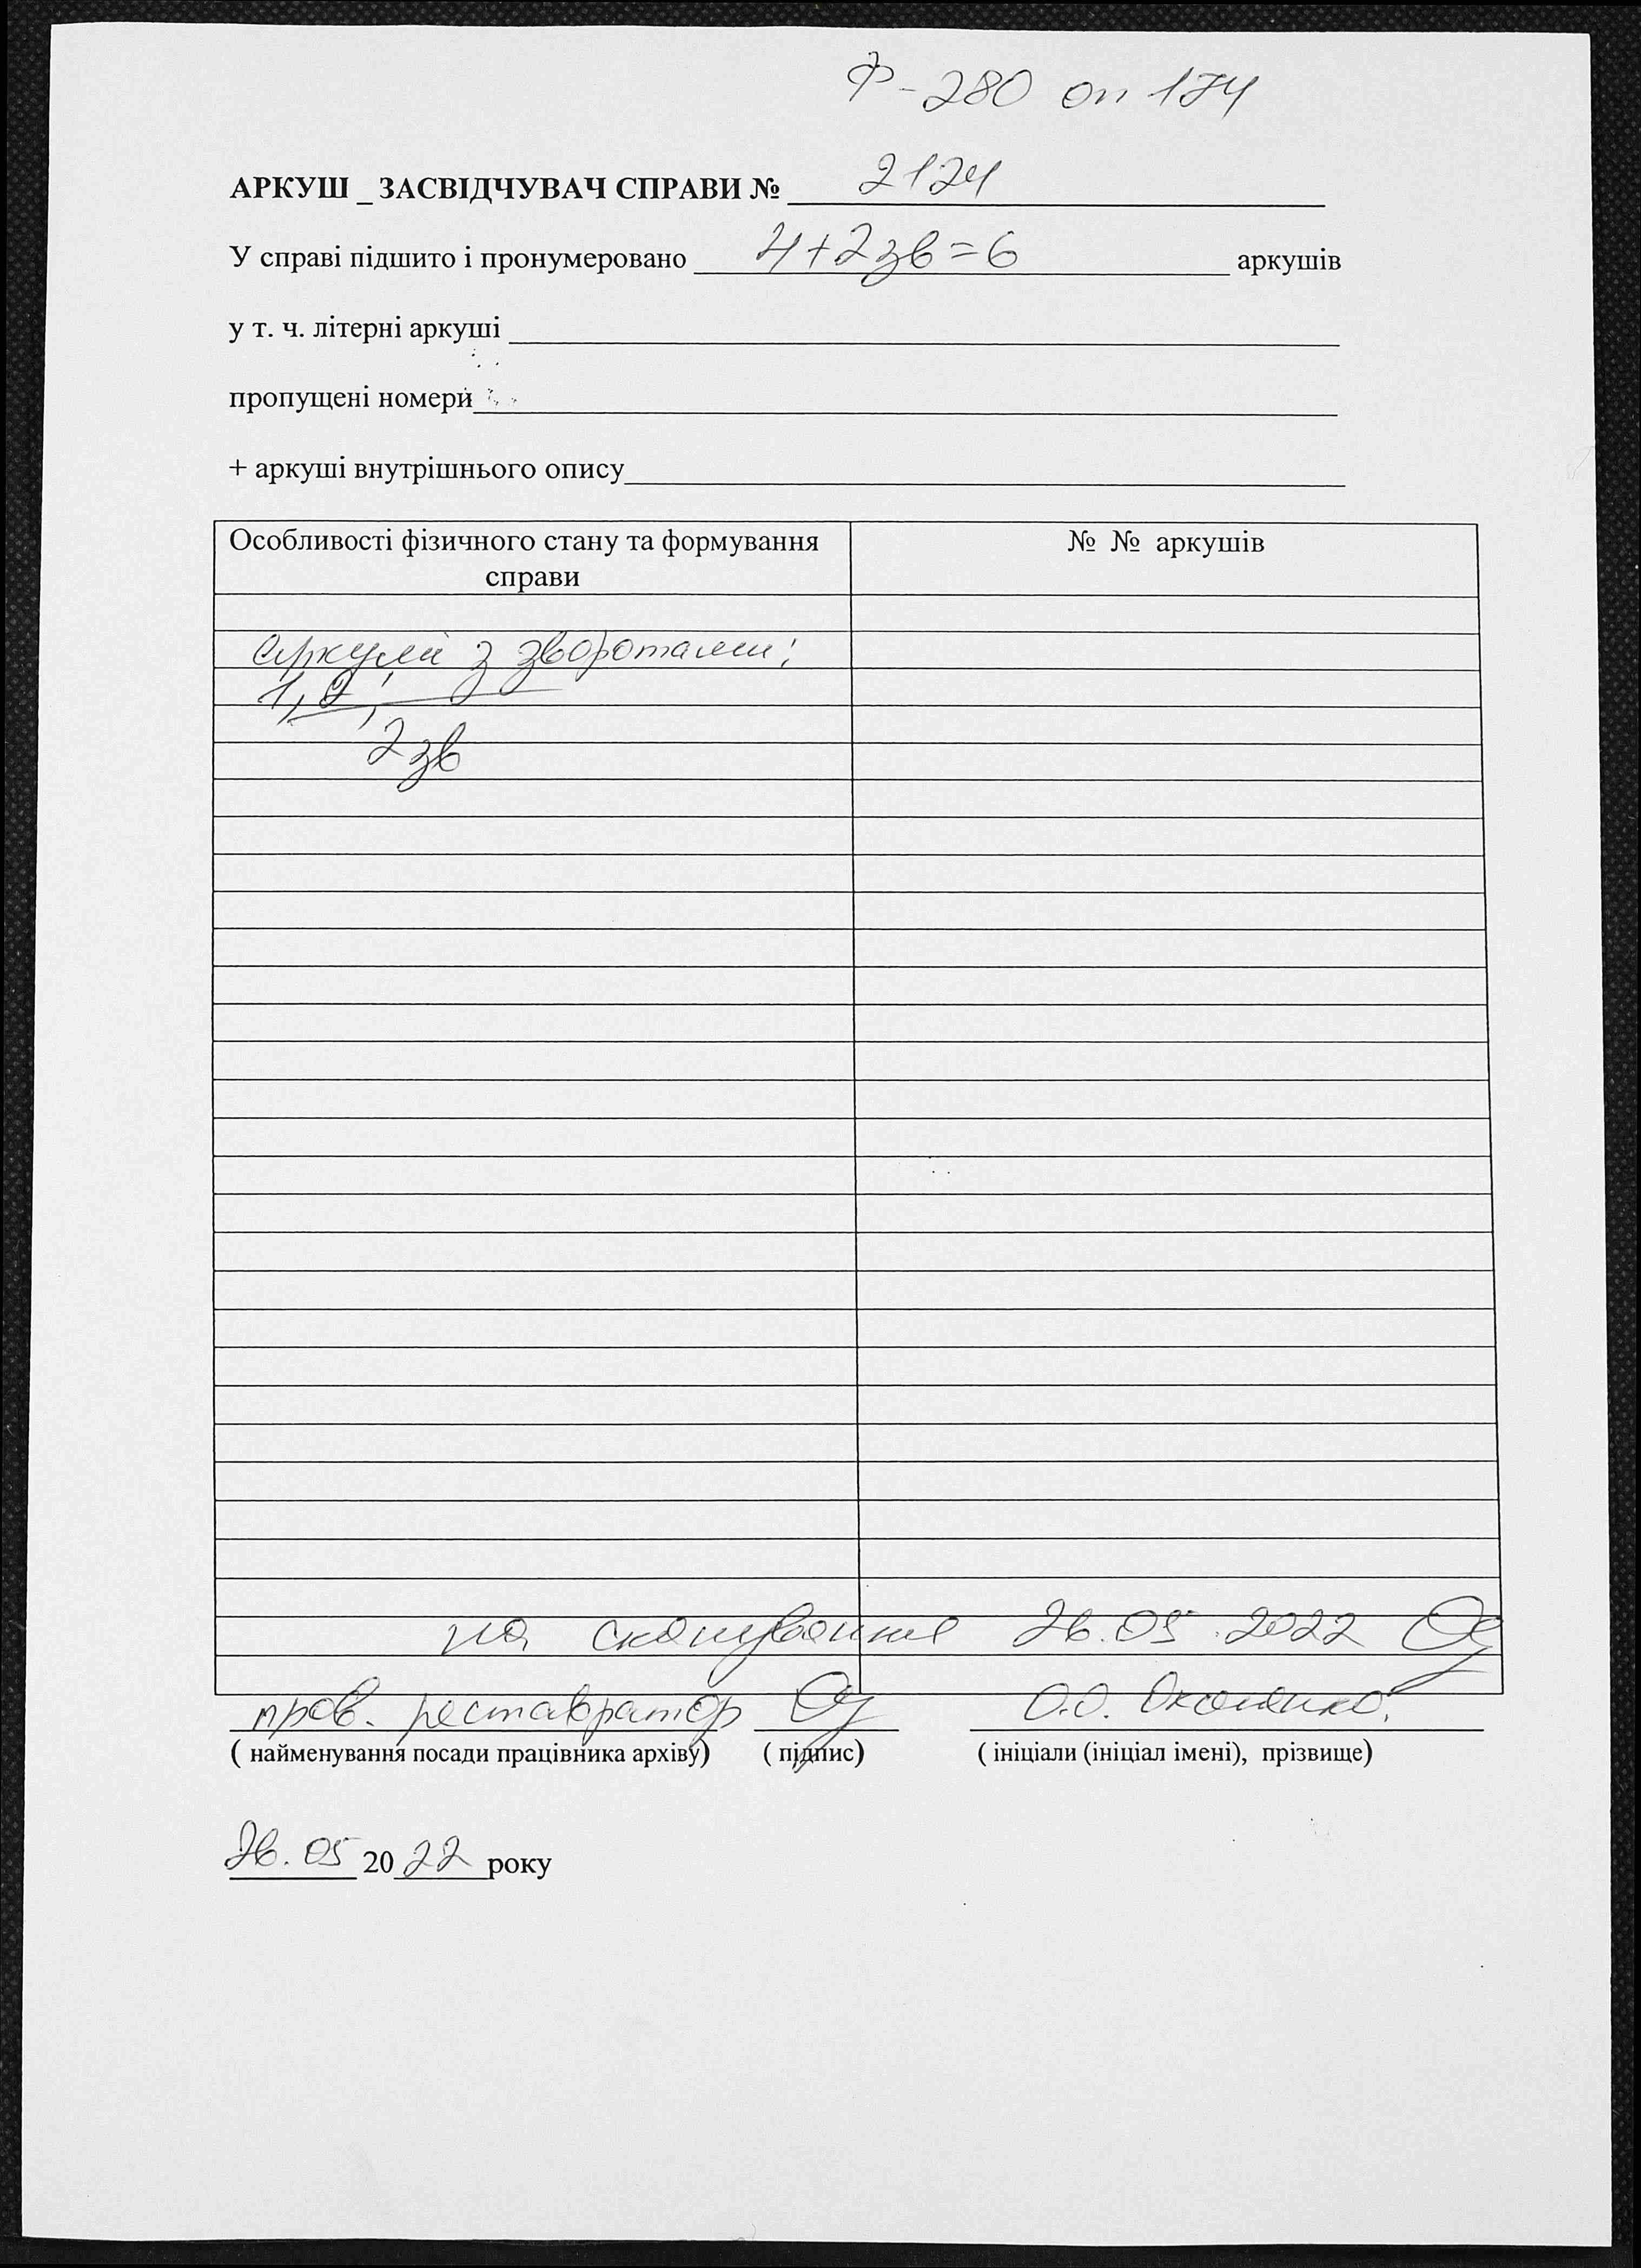 Ф-280 оп 174
АРКУШ _ ЗАСВІДЧУВАЧ СПРАВИ № 2124
У справі підшито і пронумеровано 4+2зв=6 аркушів
у т. ч. літерні аркуші
пропущені номери
+ аркуші внутрішнього опису
Особливості фізичного стану та формування справи № № аркушів
Аркуші з зворотами:
1, 2,
2 зв
на сканування 26.05.2022
пров. реставратор О.О.
( найменування посади працівника архіву) ( підпис) ( ініціали (ініціал імені), прізвище)
26.05 2022 року